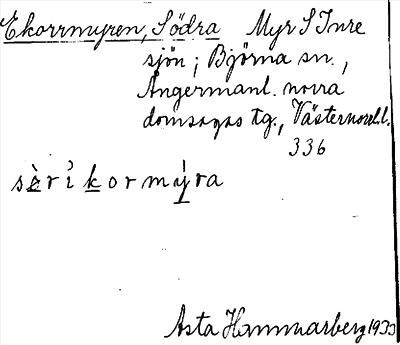 Ekorrmyren, Södra Myr S Inre
sjön; Björna sn.,
Ångermanl. norra
domsagas tg., Västernorrl. l.
336
sèrikormyra
Asta Hammarberg 1933